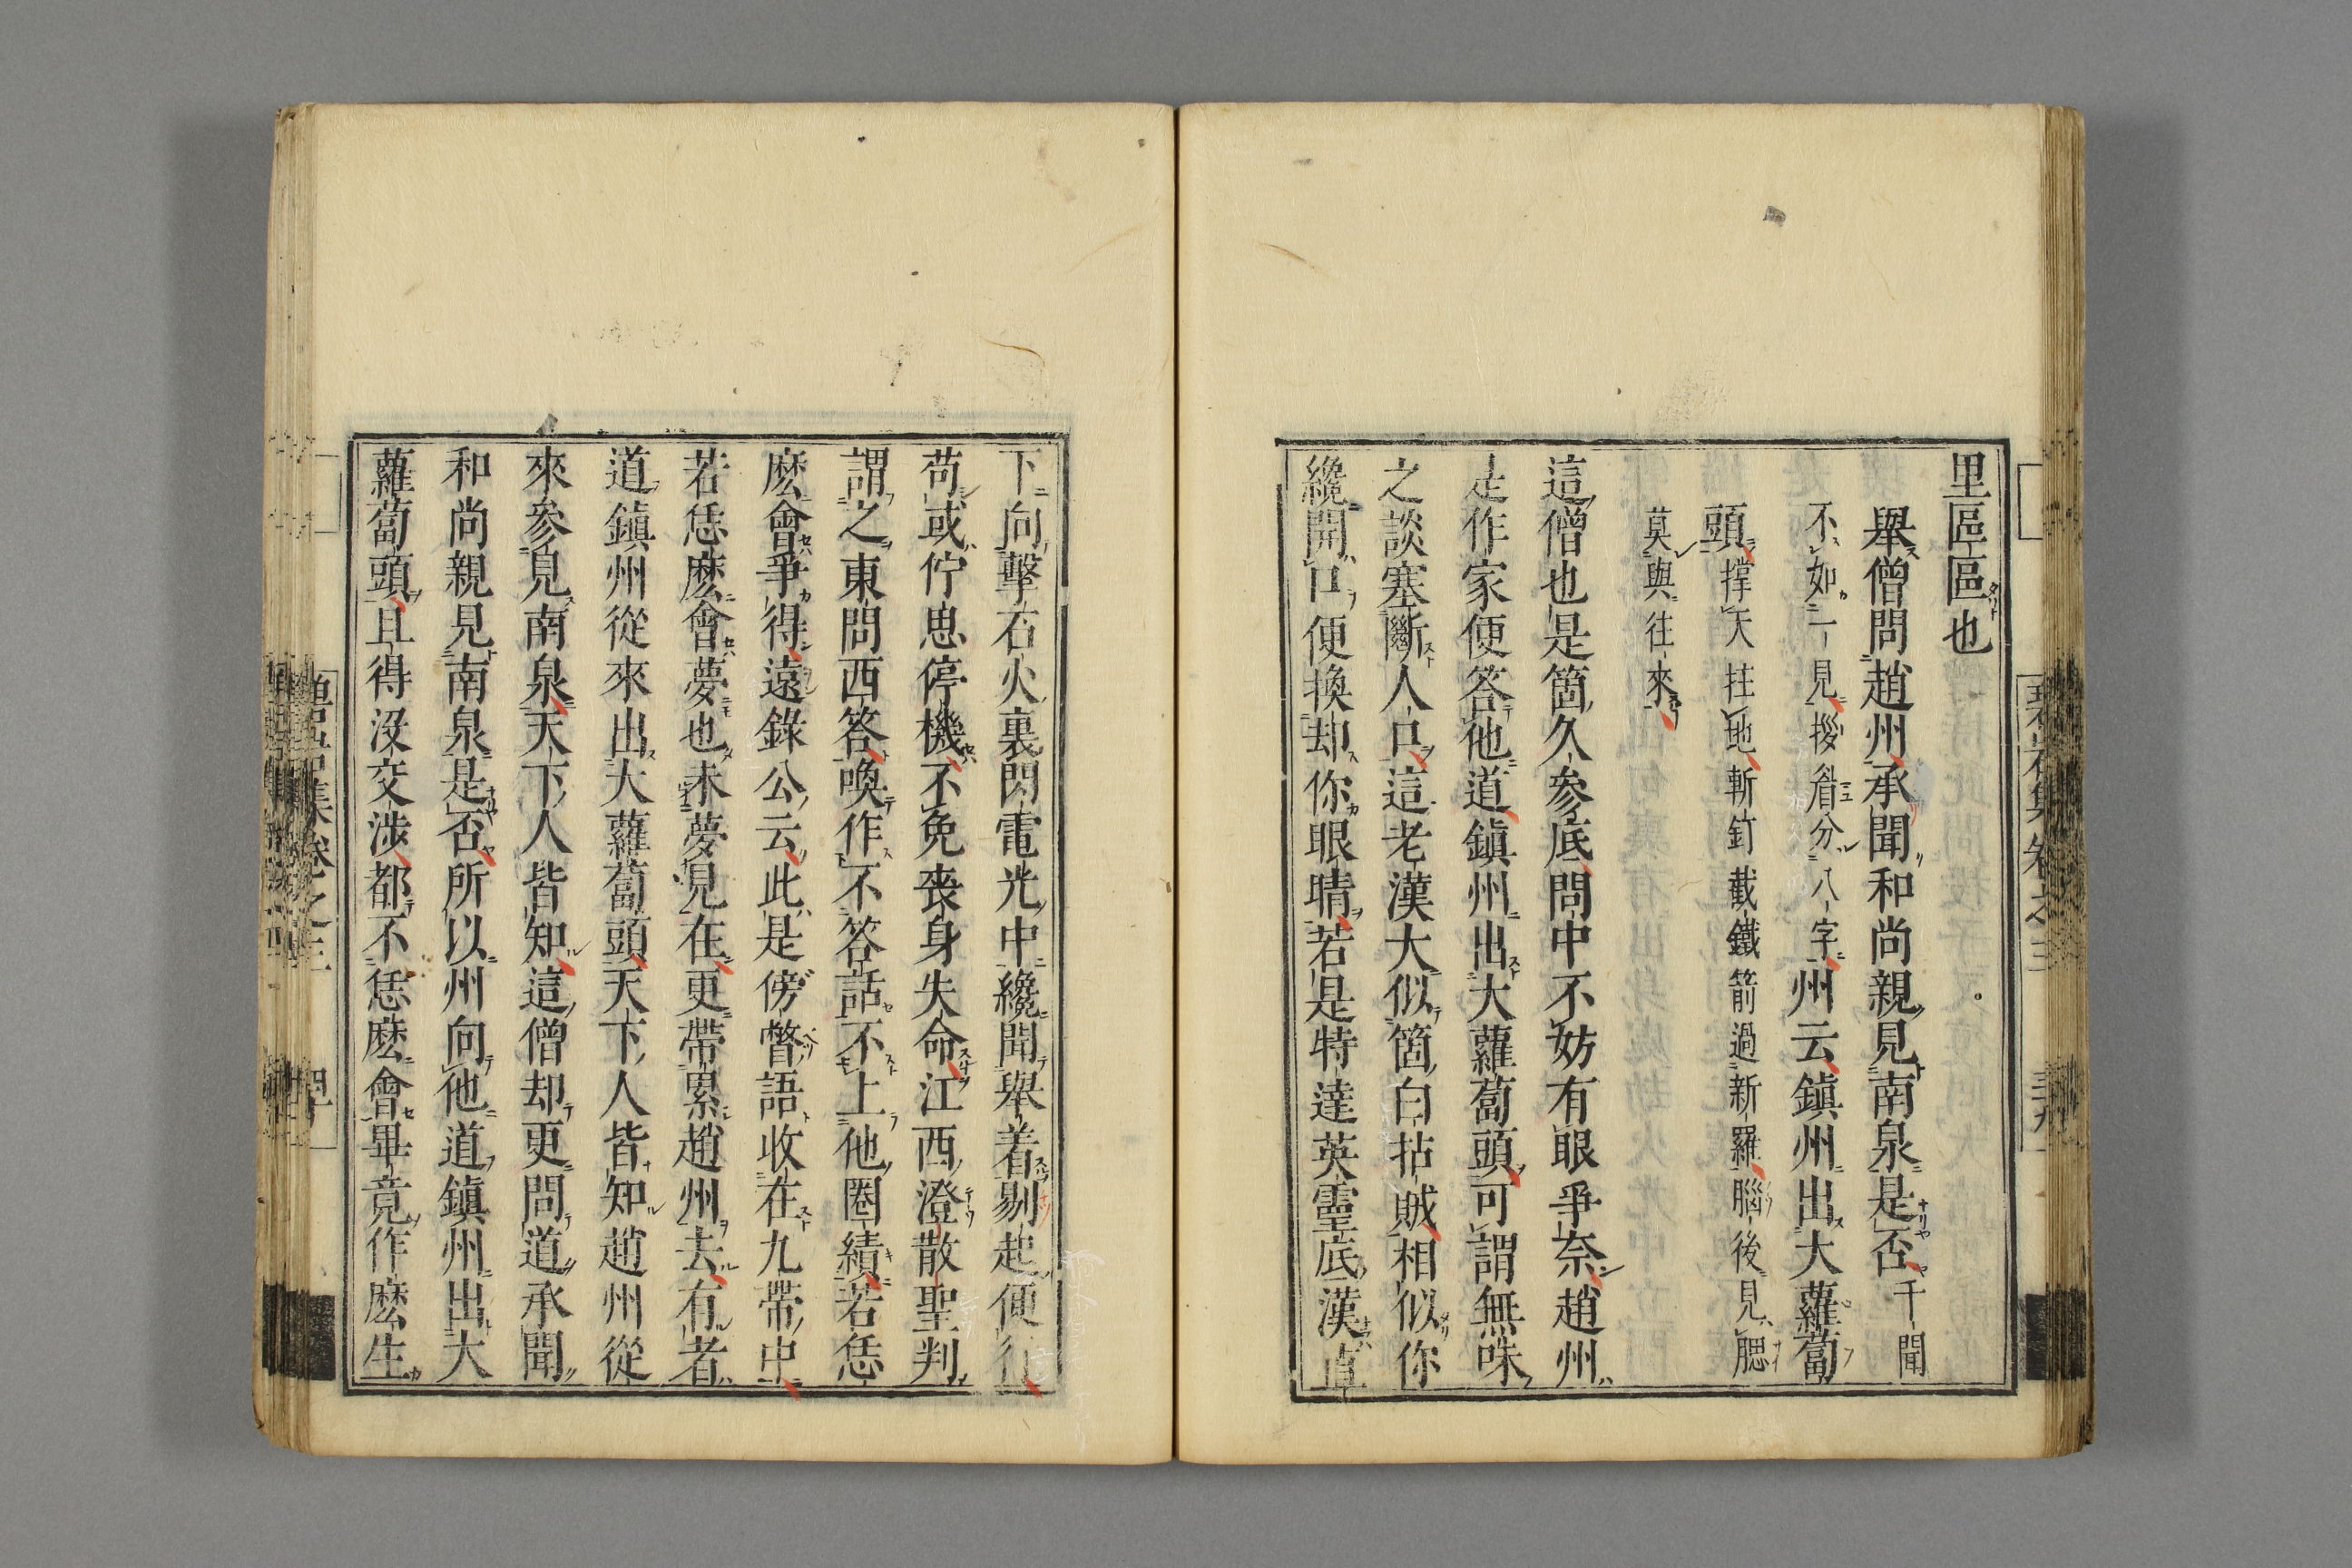 里區區也
舉僧問趙州承聞和尚親見南泉是否千聞
不如一見拶眉分八字州云鎮州出大蘿蔔
頭撑天拄地斬釘截鐵箭過新羅腦後見腮
莫與往來
這僧也是箇久參底問中不妨有眼爭奈趙州
是作家便答他道鎮州出大蘿蔔頭可謂無味
之談塞斷人口這老漢大似箇白拈賊相似你
纔開口便換却你眼睛若是特達英靈底漢直
下向擊石火裏閃電光中纔聞舉着剔起便行
苟或佇思停機不免喪身失命江西澄散聖判
謂之東問西答喚作不答話不上他圈繢若恁
麽會爭得遠錄公云此是傍瞥語收在九帶中
若恁麽會夢也未夢見在更帶累趙州去有者
道鎮州從來出大蘿蔔頭天下人皆知趙州從
來參見南泉天下人皆知這僧却更問道承聞
和尚親見南泉是否所以州向他道鎮州出大
蘿蔔頭且得沒交涉都不恁麽會畢竟作麽生